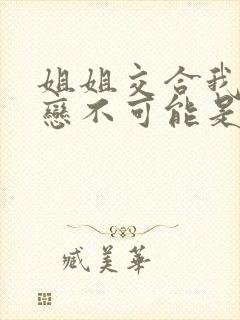 姐姐交合我
戀不可能是
臧美華